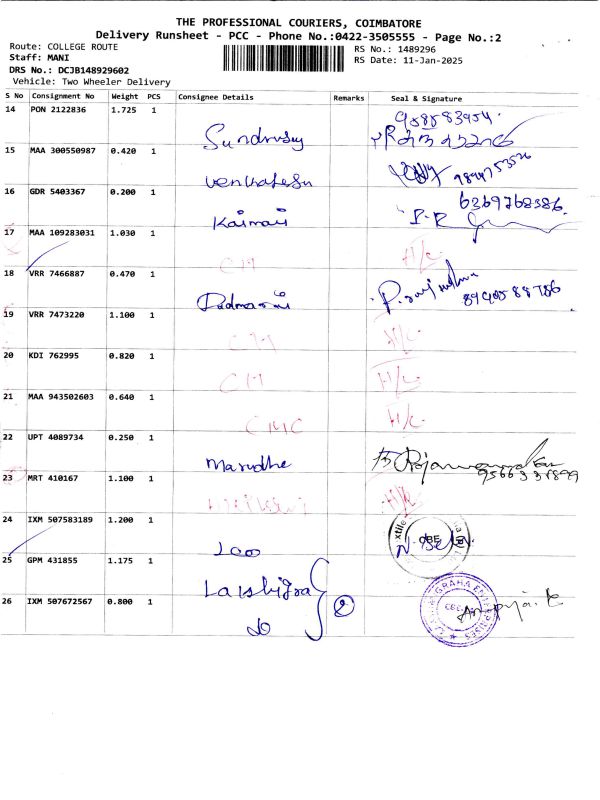 THE PROFESSIONAL COURIERS, COIMBATORE
Delivery Runsheet - PCC - Phone No.:0422-3505555 - Page No.:2
Route: COLLEGE ROUTE
RS No.: 1489296
Staff: MANI
RS Date: 11-Jan-2025
DRS No.: DCJB148929602
Vehicle: Two Wheeler Delivery
S No Consignment No Weight PCS Consignee Details Remarks Seal & Signature
14 PON 2122836 1.725 1
15 MAA 300550987 0.420 1
16 GDR 5403367 0.200 1 6369768386
17 MAA 109283031 1.030 1 CM H/c
18 VRR 7466887 0.470 1
19 VRR 7473220 1.100 1 CM H/c
20 KDI 762995 0.820 1 CM H/c
21 MAA 943502603 0.640 1 CMC H/c
22 UPT 4089734 0.250 1 Marudhe
23 MRT 410167 1.100 1
24 IXM 507583189 1.200 1 Lao
25 GPM 431855 1.175 1
26 IXM 507672567 0.800 1 do 2